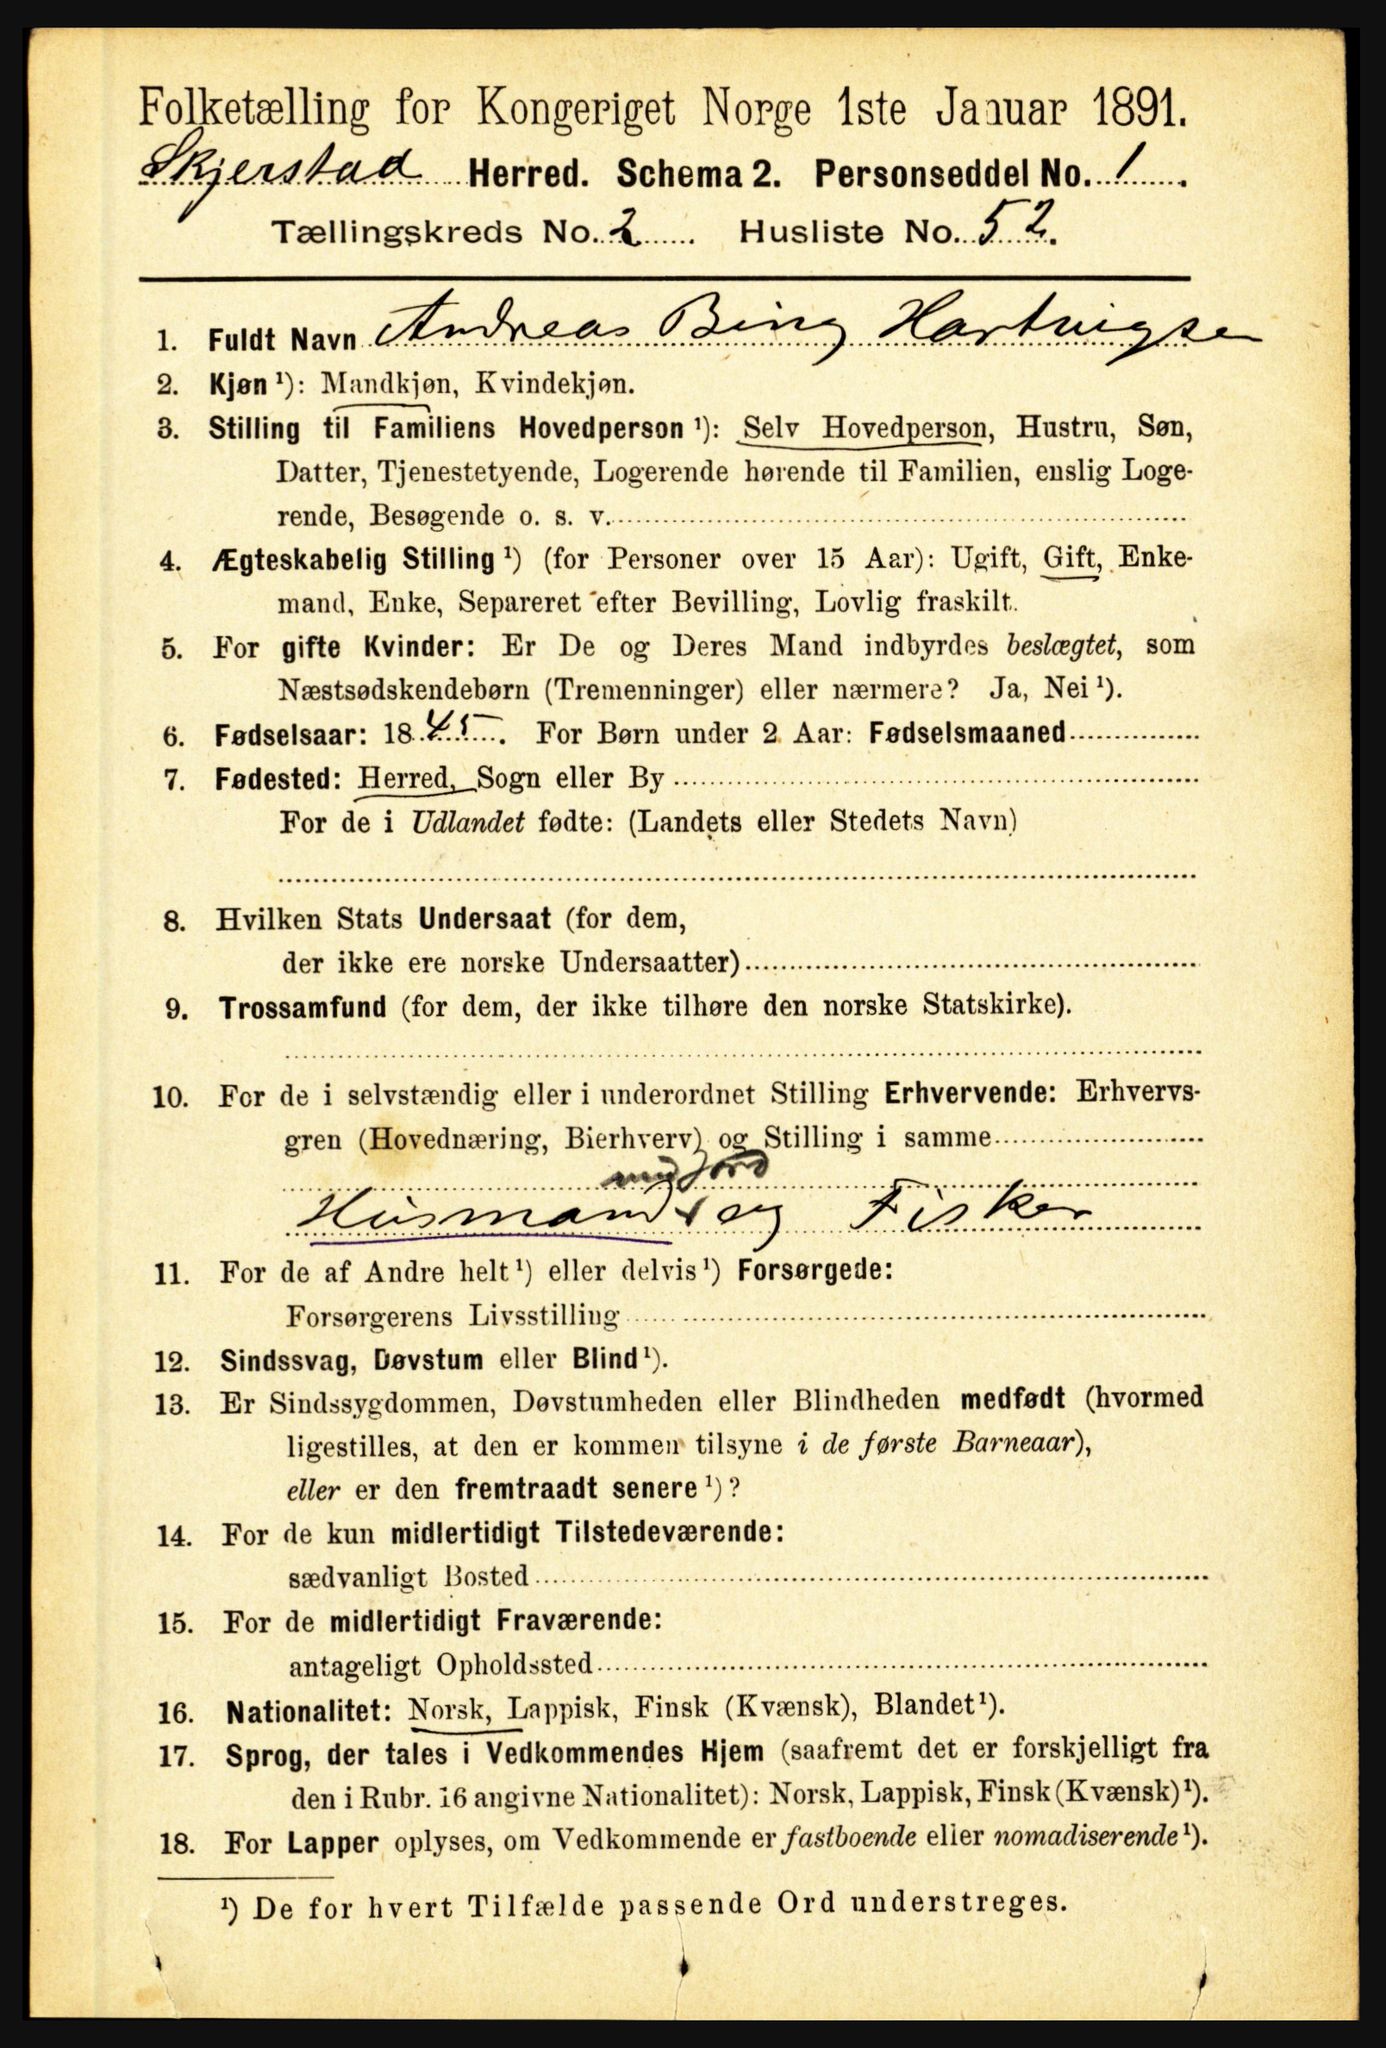 Folketælling for Kongeriget Norge 1ste Januar 1891.
Skjerstad Herred. Schema 2. Personseddel No. 1
Tællingskreds No. 2 Husliste No. 52.
1. Fuldt Navn Andreas Bing Hartvigsen
2. Kjøn ¹): Mandkjøn, Kvindekjøn.
3. Stilling til Familiens Hovedperson ¹): Selv Hovedperson, Hustru, Søn,
Datter, Tjenestetyende, Logerende hørende til Familien, enslig Loge-
rende, Besøgende o. s. v.
4. Ægteskabelig Stilling ¹) (for Personer over 15 Aar): Ugift, Gift, Enke-
mand, Enke, Separeret efter Bevilling, Lovlig fraskilt.
5. For gifte Kvinder: Er De og Deres Mand indbyrdes beslægtet, som
Næstsødskendebørn (Tremenninger) eller nærmere? Ja, Nei ¹).
6. Fødselsaar: 1845. For Børn under 2 Aar: Fødselsmaaned
7. Fødested: Herred, Sogn eller By
For de i Udlandet fødte: (Landets eller Stedets Navn)
8. Hvilken Stats Undersaat (for dem,
der ikke ere norske Undersaatter)
9. Trossamfund (for dem, der ikke tilhøre den norske Statskirke).
10. For de i selvstændig eller i underordnet Stilling Erhvervende: Erhvervs-
gren (Hovednæring, Bierhverv) og Stilling i samme
med Jord
Husmand og Fisker
11. For de af Andre helt ¹) eller delvis ¹) Forsørgede:
Forsørgerens Livsstilling
12. Sindssvag, Døvstum eller Blind ¹).
13. Er Sindssygdommen, Døvstumheden eller Blindheden medfødt (hvormed
ligestilles, at den er kommen tilsyne i de første Barneaar),
eller er den fremtraadt senere ¹)?
14. For de kun midlertidigt Tilstedeværende:
sædvanligt Bosted
15. For de midlertidigt Fraværende:
antageligt Opholdssted
16. Nationalitet: Norsk, Lappisk, Finsk (Kvænsk), Blandet ¹).
17. Sprog, der tales i Vedkommendes Hjem (saafremt det er forskjelligt fra
den i Rubr. 16 angivne Nationalitet): Norsk, Lappisk, Finsk (Kvænsk) ¹).
18. For Lapper oplyses, om Vedkommende er fastboende eller nomadiserende ¹).
¹) De for hvert Tilfælde passende Ord understreges.